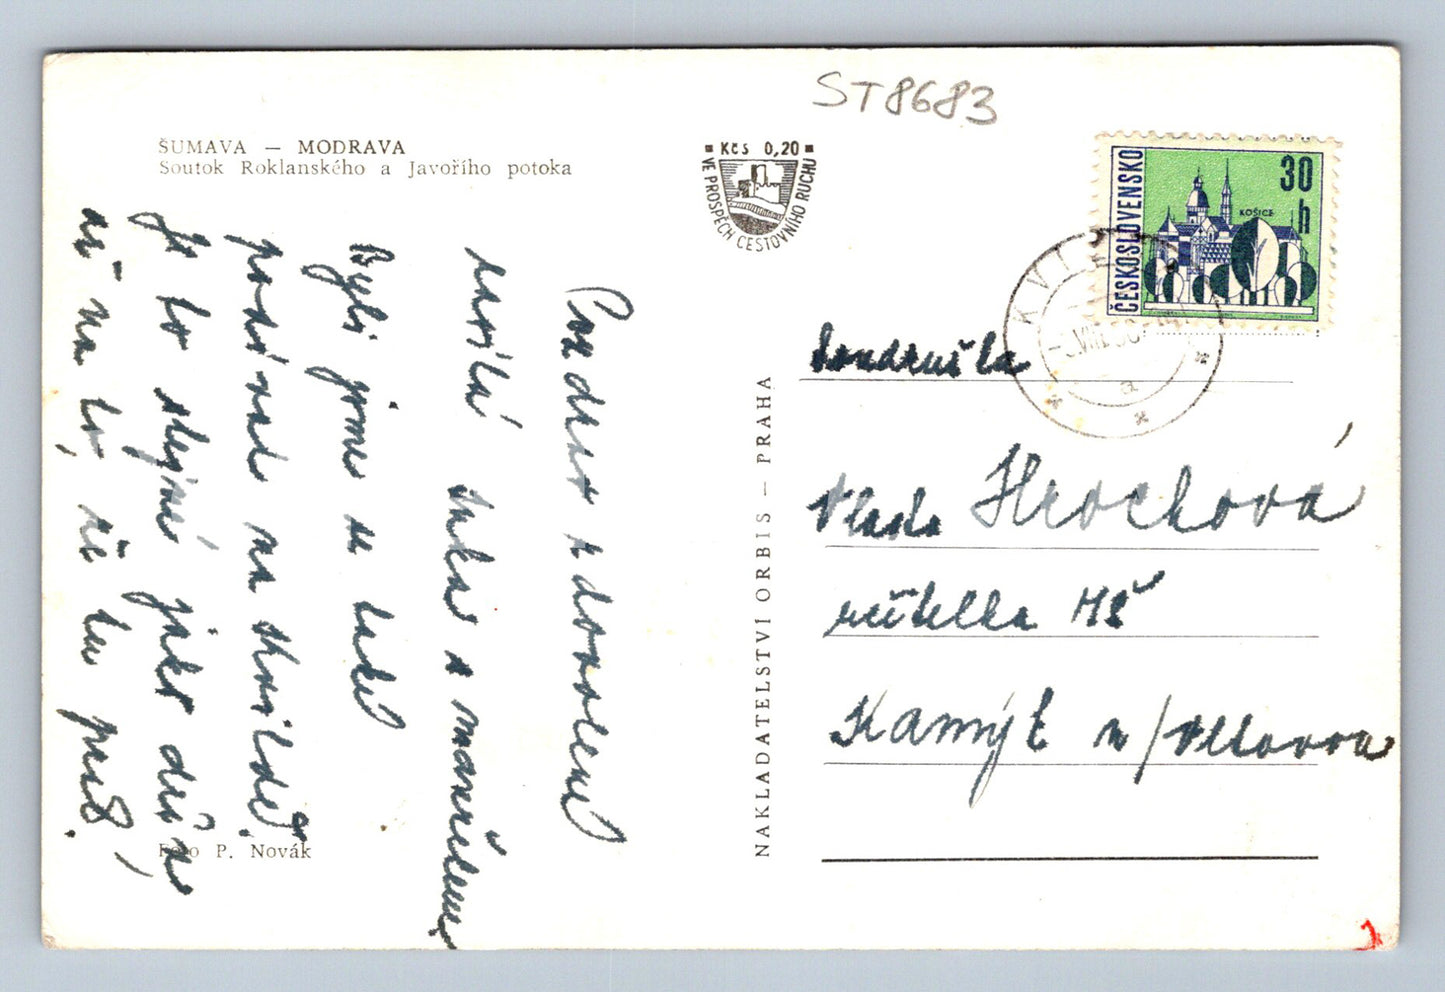 ST8683
ŠUMAVA — MODRAVA
Soutok Roklanského a Javořího potoka
Kčs 0,20
VE PROSPĚCH CESTOVNÍHO RUCHU
ČESKOSLOVENSKO
30
h
KOŠICE
Pozdrav z dovolené
zasílá Inka s manželem
Byli jsme se také
podívat na Kvildě.
Je to stejné jako dřív
až na to, že tu prší.
Foto P. Novák
NAKLADATELSTVÍ ORBIS — PRAHA
Soudružka
Vlasta Hrochová
učitelka MŠ
Kamýk n/Vltavou